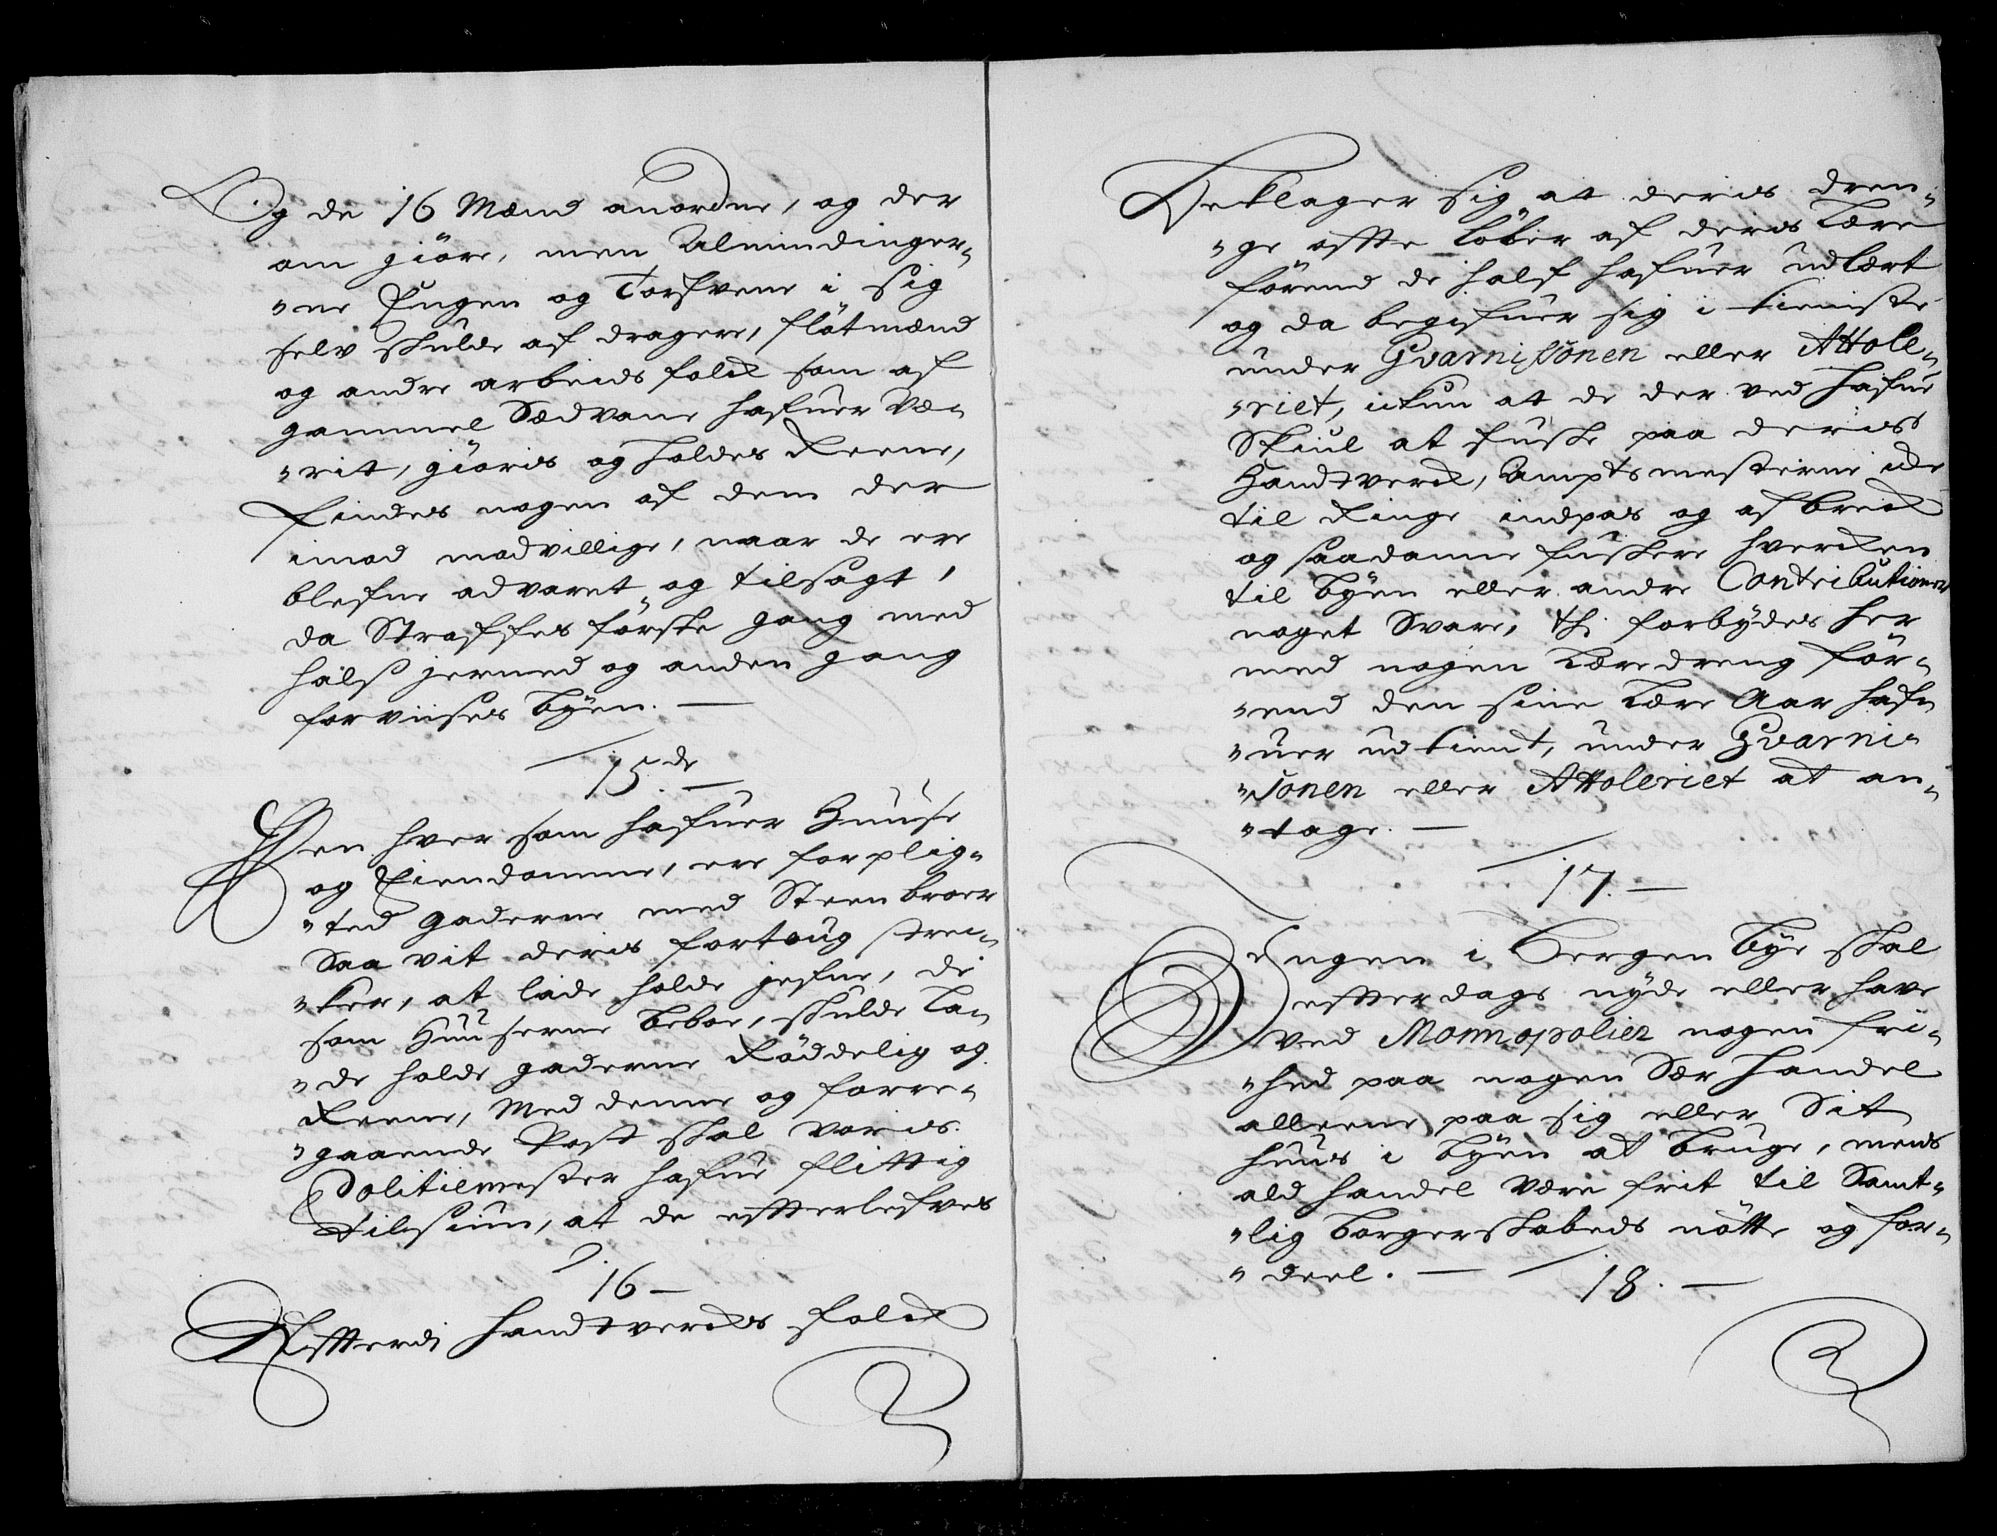 Og de 16 Mænd anordne, og der
om giöre, men Almindinger„
„ne Engen og Torfvene i sig
selv skulde af dragere, flötmænd
og andre arbeids folck som af
gammel Sædvane hafuer Væ„
„rit, giöris og holdes Reene,
findes nogen af dem der
imod modvillige, naar de ere
blefne advaret og tilsagt,
da Straffes förste gang med
hals jernet og anden gang
forviises Byen. —
15de —
Een hver som hafuer Huuse
og Eiendomme, ere forplig„
„ted gaderne med Steenbroer
Saa vit deris fortoug strec„
„ker, at lade holde jefne, de
som Huuserne beboe, skulde La„
„de holde gaderne Röddelig og
Reene, Med denne og forre„
„gaaende Post skal voris
Politiemester hafue flittig
tilsiun, at de effterlefves
16 —
Effterdj handtvercks folck
Beklager sig at deris dren„
„ge offte löber af deris Lære
förend de halft hafuer udlært
og da begifuer sig i tieniste
under Gvarnisonen eller Attole„
„riet, ickun at de der ved hafue
Skiul at fuske paa deris
Handtverck, Amptsmesterne icke
til Ringe indpas og afbreck
og saadanne fuskere hvercken
til Byen eller andre Contributioner
noget Svare, thj forbydes her
med nogen Læredreng för„
„end den sine Lære Aar haf„
„uer udtient, under Gvarni„
„sonen eller Attoleriet at an„
„tage. —
17. —
Ingen i Bergen Bye skal
effterdags nyde eller have
ved Monnopolier nogen fri„
„hed paa nogen Sær handel
alleene paa sig eller Sit
huus i Byen at bruge, mens
ald handel Være frit til Samt„
„lig borgerskabeds nötte og for„
„deel. — 18. —